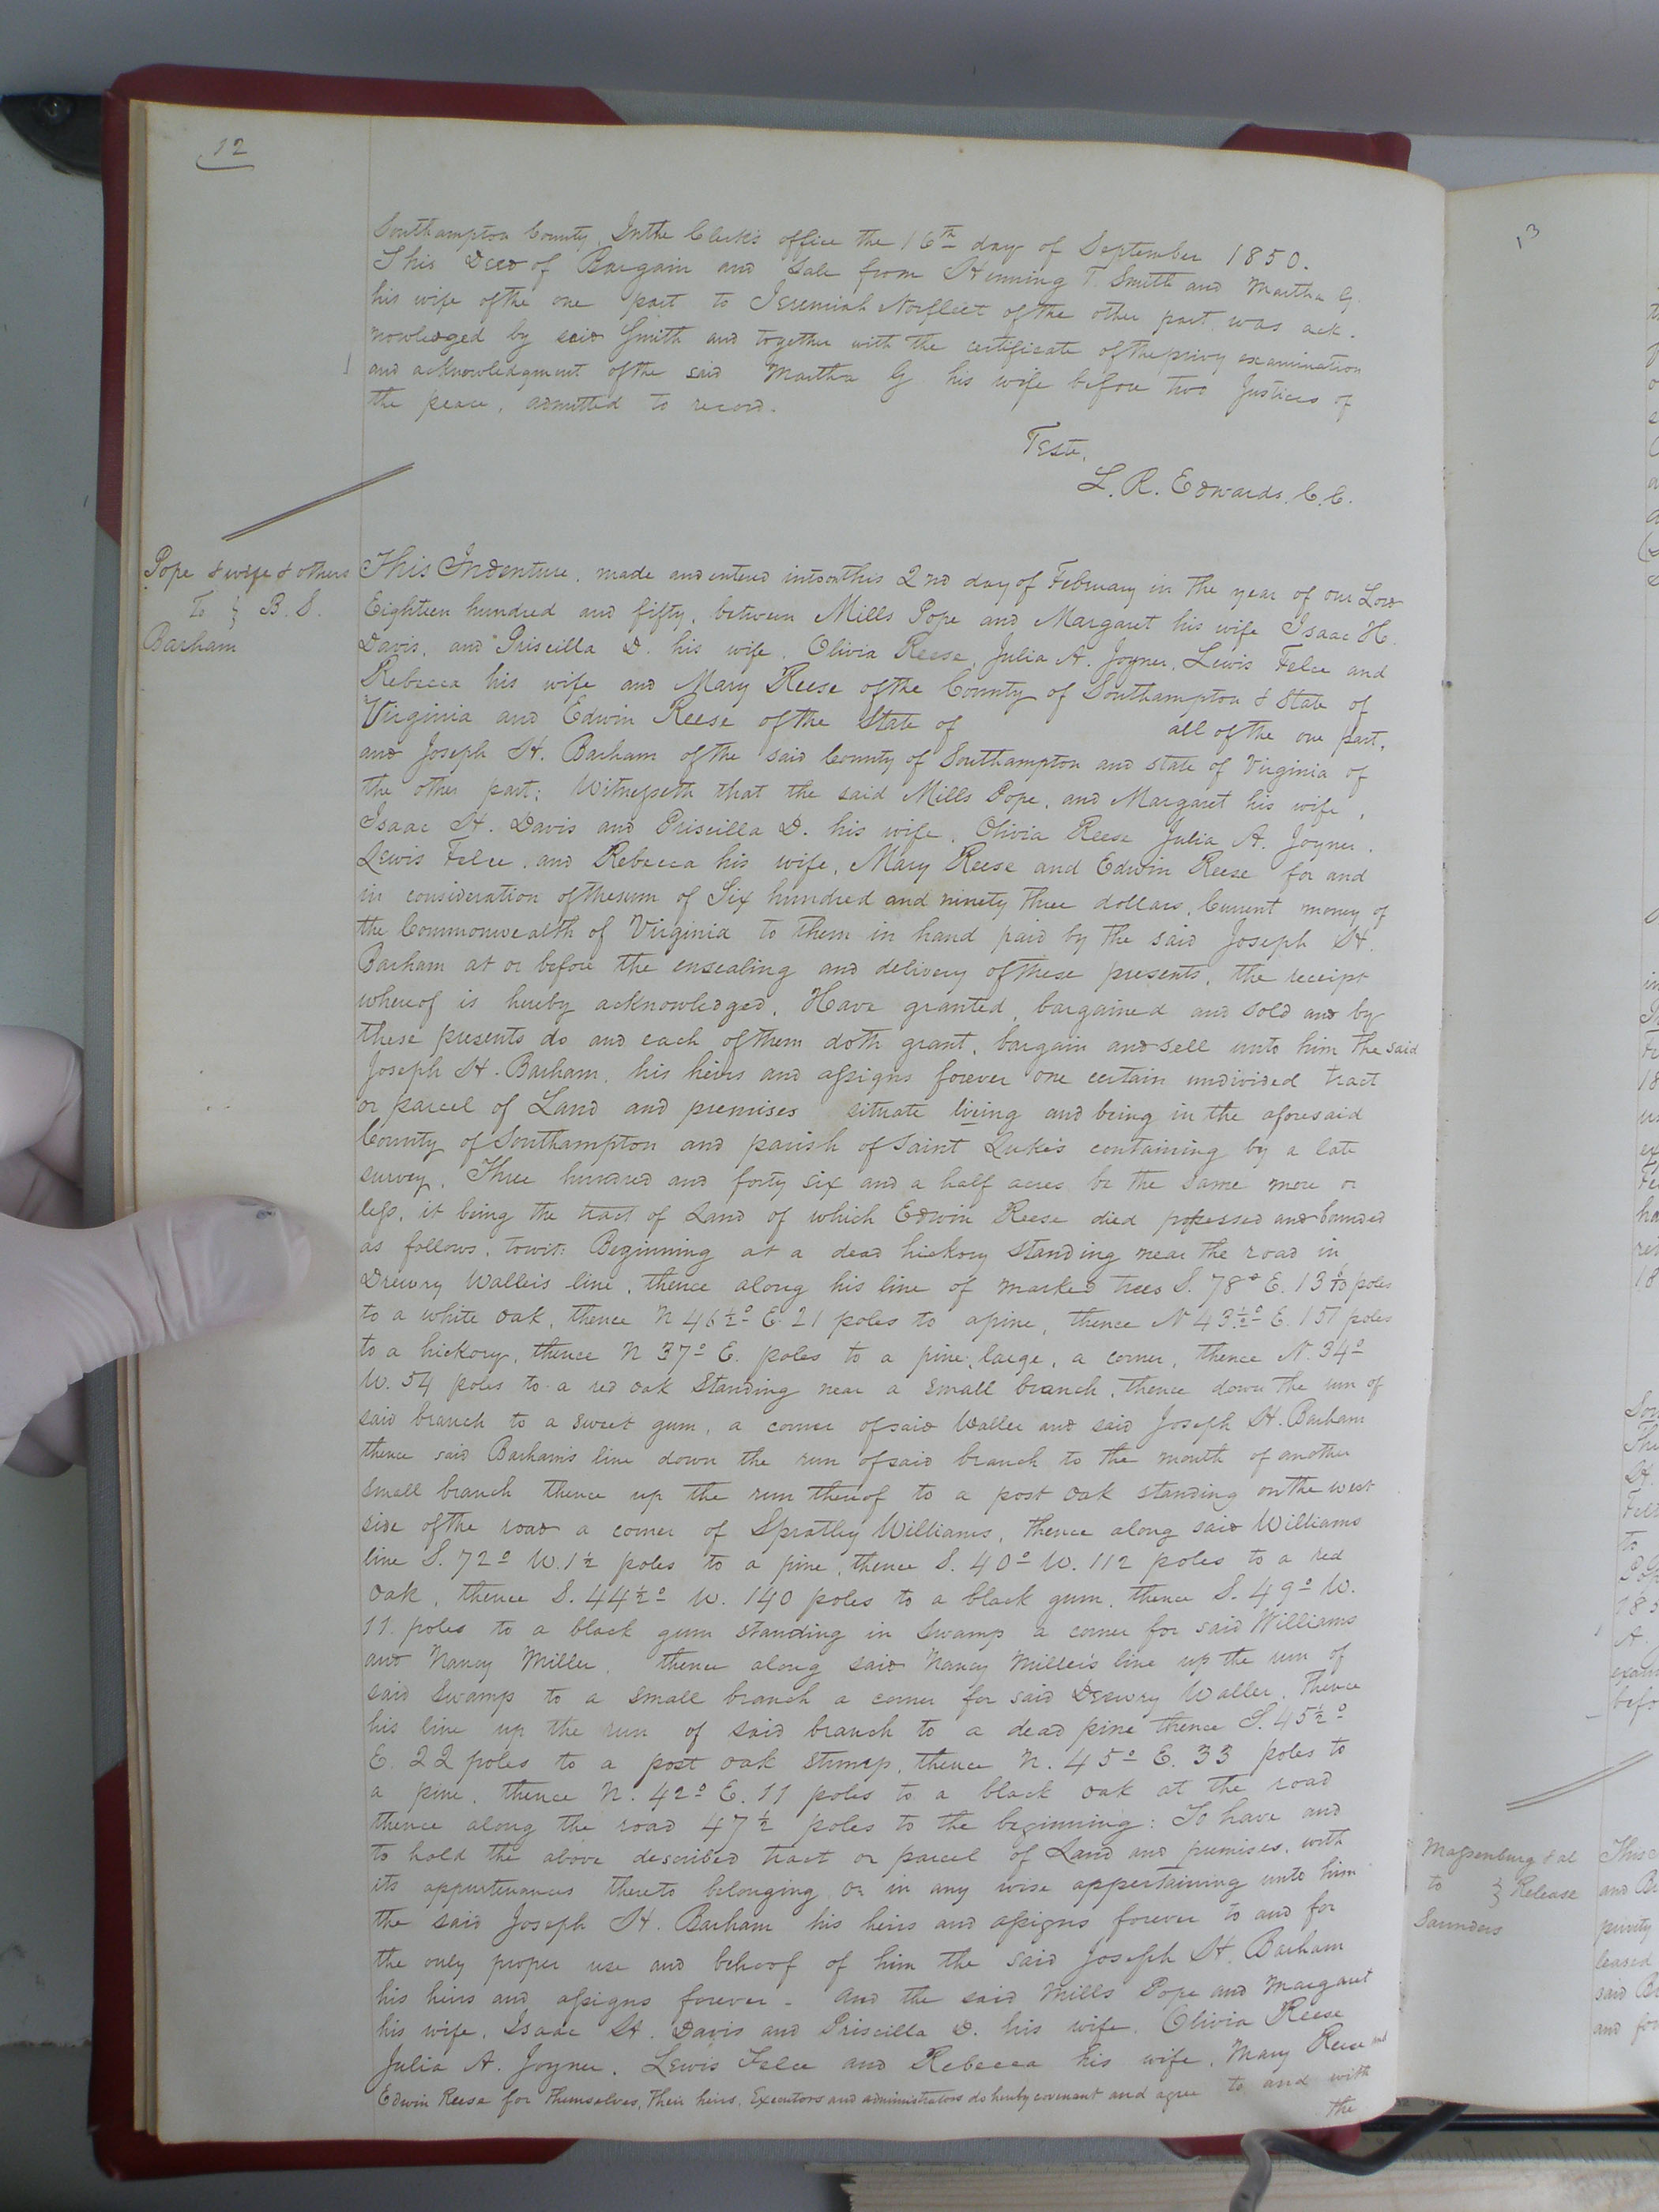 12
Southampton County, In the Clerk's office the 16th day of September 1850.
This Deed of Bargain and Sale from Henning T. Smith and Martha G.
his wife of the one part to Jeremiah Norfleet of the other part was ack-
nowledged by said Smith and together with the certificate of the privy examination
and acknowledgment of the said Martha G. his wife before two Justices of
the peace, admitted to record.
Teste,
L. R. Edwards, C. C.
Pope & wife & others
To } B. S.
Barham
This Indenture, made and entered into on this 2nd day of February in the year of our Lord
Eighteen hundred and fifty, between Mills Pope and Margaret his wife Isaac H.
Davis, and Priscilla D. his wife, Olivia Reese, Julia A. Joyner, Lewis Felce and
Rebecca his wife and Mary Reese of the County of Southampton & State of
Virginia and Edwin Reese of the State of all of the one part,
and Joseph H. Barham of the said County of Southampton and state of Virginia of
the other part: Witnesseth that the said Mills Pope, and Margaret his wife,
Isaac H. Davis and Priscilla D. his wife, Olivia Reese Julia A. Joyner,
Lewis Felce, and Rebecca his wife, Mary Reese and Edwin Reese for and
in consideration of the sum of Six hundred and ninety three dollars, Current money of
the Commonwealth of Virginia to them in hand paid by the said Joseph H.
Barham at or before the ensealing and delivery of these presents, the receipt
whereof is hereby acknowledged, Have granted, bargained and sold and by
these presents do and each of them doth grant, bargain and sell unto him the said
Joseph H. Barham, his heirs and assigns forever one certain undivided tract
or parcel of Land and premises situate living and being in the aforesaid
County of Southampton and parish of Saint Luke's containing by a late
survey, Three hundred and forty six and a half acres be the same more or
less, it being the tract of Land of which Edwin Reese died possessed and bounded
as follows, towit: Beginning at a dead hickory standing near the road in
Drewry Waller's line, thence along his line of marked trees S. 78° E. 13 poles
to a white oak, thence N 46½° E. 21 poles to a pine, thence N 43½° E. 157 poles
to a hickory, thence N 37° E. poles to a pine, large, a corner, thence N. 34°
W. 54 poles to a red oak standing near a small branch, thence down the run of
said branch to a sweet gum, a corner of said Waller and said Joseph H. Barham
thence said Barham's line down the run of said branch to the mouth of another
small branch thence up the run thereof to a post oak standing on the west
side of the road a corner of Spratley Williams, thence along said Williams
line S. 72° W. 1½ poles to a pine, thence S. 40° W. 112 poles to a red
oak, thence S. 44½° W. 140 poles to a black gum, thence S. 49° W.
11 poles to a black gum standing in swamp a corner for said Williams
and Nancy Miller, thence along said Nancy Miller's line up the run of
said swamp to a small branch a corner for said Drewry Waller, thence
his line up the run of said branch to a dead pine thence S. 45½°
E. 22 poles to a post oak stump, thence N. 45° E. 33 poles to
a pine, thence N. 42° E. 11 poles to a black oak at the road
thence along the road 47½ poles to the beginning: To have and
to hold the above described tract or parcel of Land and premises, with
its appurtenances thereto belonging or in any wise appertaining unto him
the said Joseph H. Barham his heirs and assigns forever to and for
the only proper use and behoof of him the said Joseph H. Barham
his heirs and assigns forever - And the said Mills Pope and Margaret
his wife, Isaac H. Davis and Priscilla D. his wife, Olivia Reese
Julia A. Joyner, Lewis Felce and Rebecca his wife, Mary Reese and
Edwin Reese for themselves, their heirs, Executors and administrators do hereby covenant and agree to and with
the
13
Massenburg & al
to } Release
Saunders
This
and
said
and